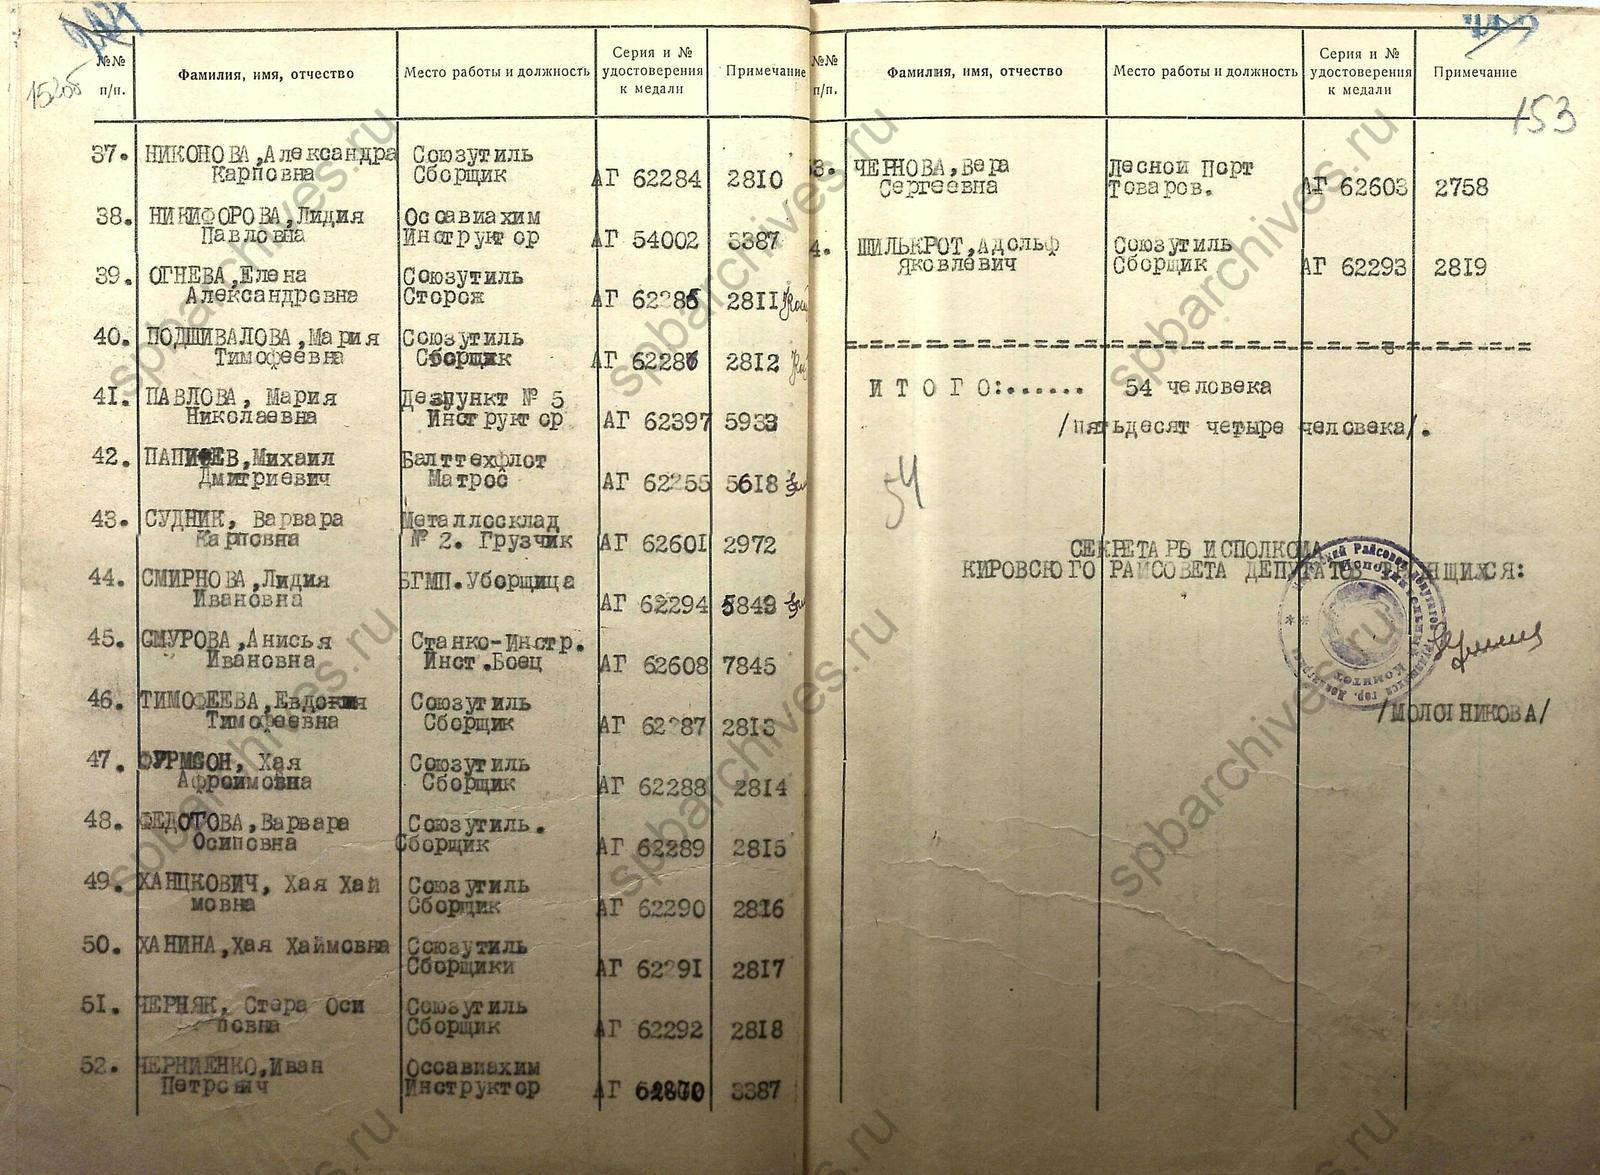 №№
п/п.
Фамилия, имя, отчество
Место работы и должность
Серия и №
удостоверения
к медали
Примечание
37. НИКОНОВА, Александра Союзутиль
Карповна Сборщик АГ 62284 2810
38. НИКИФОРОВА, Лидия Оссавиахим
Павловна Инструктор АГ 54002 3387
39. ОГНЕВА, Елена Союзутиль
Александровна Сторож АГ 62285 2811
40. ПОДШИВАЛОВА, Мария Союзутиль
Тимофеевна Сборщик АГ 62286 2812
41. ПАВЛОВА, Мария Дезпункт № 5
Николаевна Инструктор АГ 62397 5933
42. Михаил Балттехфлот
Дмитриевич Матрос АГ 62255 5618
43. СУДНИК, Варвара Металлосклад
Карповна № 2. Грузчик АГ 62601 2972
44. СМИРНОВА, Лидия БГМП. Уборщица
Ивановна АГ 62294 5849
45. СМУРОВА, Анисья Станко-Инстр.
Ивановна Инст. Боец АГ 62608 7845
46. ТИМОФЕЕВА, Евдокия Союзутиль
Тимофеевна Сборщик АГ 62287 2813
47. ФУРМСОН, Хая Союзутиль
Афроимовна Сборщик АГ 62288 2814
48. ФЕДОТОВА, Варвара Союзутиль.
Осиповна Сборщик АГ 62289 2815
49. ХАНЦКОВИЧ, Хая Хай Союзутиль
мовна Сборщик АГ 62290 2816
50. ХАНИНА, Хая Хаймовна Союзутиль
Сборщики АГ 62291 2817
51. ЧЕРНЯК, Стера Оси Союзутиль
повна Сборщик АГ 62292 2818
52. ЧЕРНИЕНКО, Иван Оссавиахим
Петрович Инструктор АГ 3387
№№
п/п.
Фамилия, имя, отчество
Место работы и должность
Серия и №
удостоверения
к медали
Примечание
153
3. ЧЕРНОВА, Вера Лесной Порт
Сергеевна Товаров. АГ 62603 2758
4. ШИЛЬКРОТ, Адольф Союзутиль
Яковлевич Сборщик АГ 62293 2819
И Т О Г О:....... 54 человека
/пятьдесят четыре человека/.
54
СЕКРЕТАРЬ ИСПОЛКОМА
КИРОВСКОГО РАЙСОВЕТА ДЕПУТАТОВ ТРУДЯЩИХСЯ:
/МОЛОТНИКОВА/
spbarchives.ru